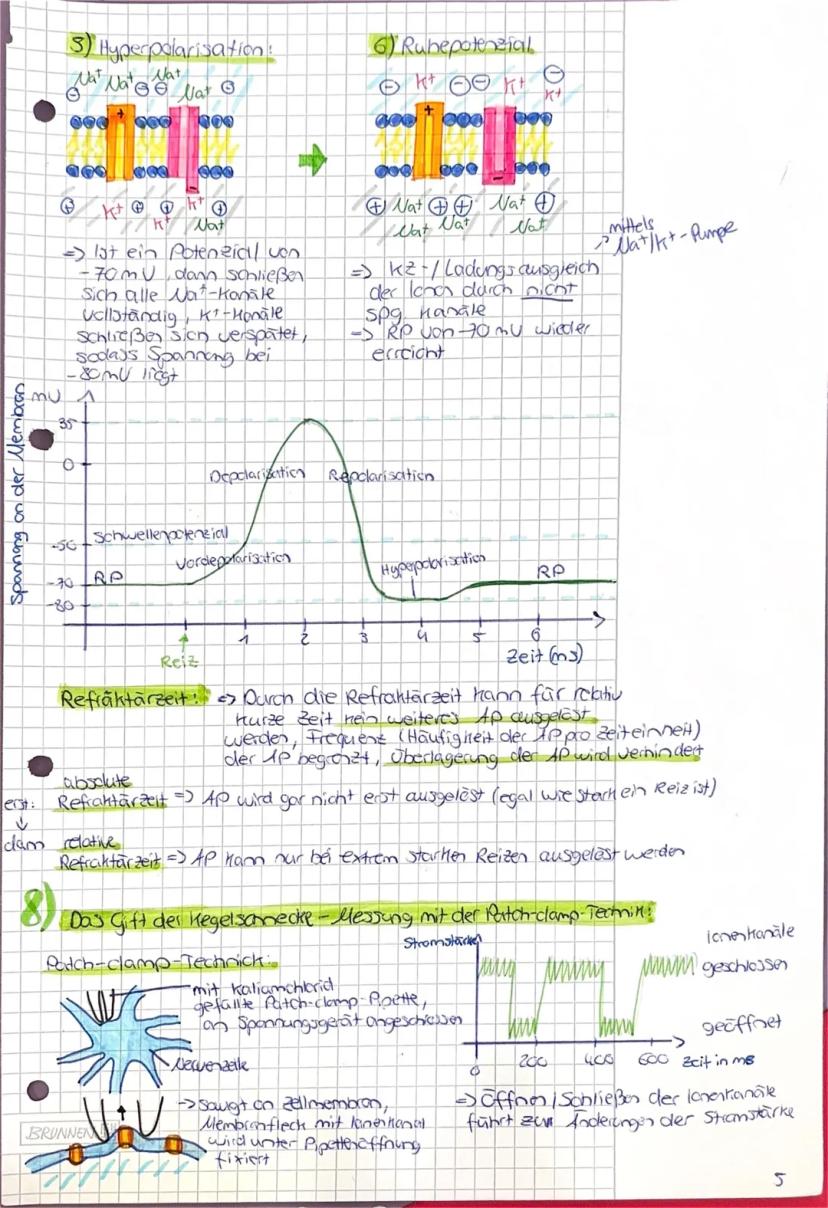 5) Hyperpolarisation:
Na⁺ Na⁺ Na⁺ Na⁺
+
-
K⁺ K⁺ K⁺ Na⁺
=> Ist ein Potenzial von
-70mV, dann schließen
sich alle Na⁺-Kanäle
vollständig, K⁺-Kanäle
schließen sich verspätet,
sodass Spannung bei
-80mV liegt
6) Ruhepotenzial
K⁺ K⁺ K⁺
+
-
Na⁺ Na⁺ Na⁺ Na⁺ Na⁺
mittels
Na⁺/K⁺-Pumpe
=> KZ-/Ladungsausgleich
der Ionen durch nicht
spg. Kanäle
=> RP von -70mV wieder
erreicht
Spannung an der Membran
mV
35
0
-50
-70
-80
Depolarisation
Repolarisation
Schwellenpotenzial
Vordepolarisation
Hyperpolarisation
RP
RP
1 2 3 4 5 6
Reiz
Zeit (ms)
Refraktärzeit: => Durch die Refraktärzeit kann für relativ
kurze Zeit kein weiteres AP ausgelöst
werden, Frequenz (Häufigkeit der AP pro Zeiteinheit)
der AP begrenzt, Überlagerung der AP wird verhindert
absolute
erst: Refraktärzeit => AP wird gar nicht erst ausgelöst (egal wie stark ein Reiz ist)
dann relative
Refraktärzeit => AP kann nur bei extrem starken Reizen ausgelöst werden
8) Das Gift der Kegelschnecke - Messung mit der Patch-clamp-Technik:
Patch-clamp-Technick:
mit Kaliumchlorid
gefüllte Patch-clamp-Pipette,
an Spannungsgerät angeschlossen
Nervenzelle
-> saugt an Zellmembran,
Membranfleck mit Ionenkanal
wird unter Pipettenöffnung
fixiert
BRUNNEN
Stromstärke
Ionenkanäle
geschlossen
geöffnet
0 200 400 600 Zeit in ms
=> Öffnen/Schließen der Ionenkanäle
führt zur Änderungen der Stromstärke
5